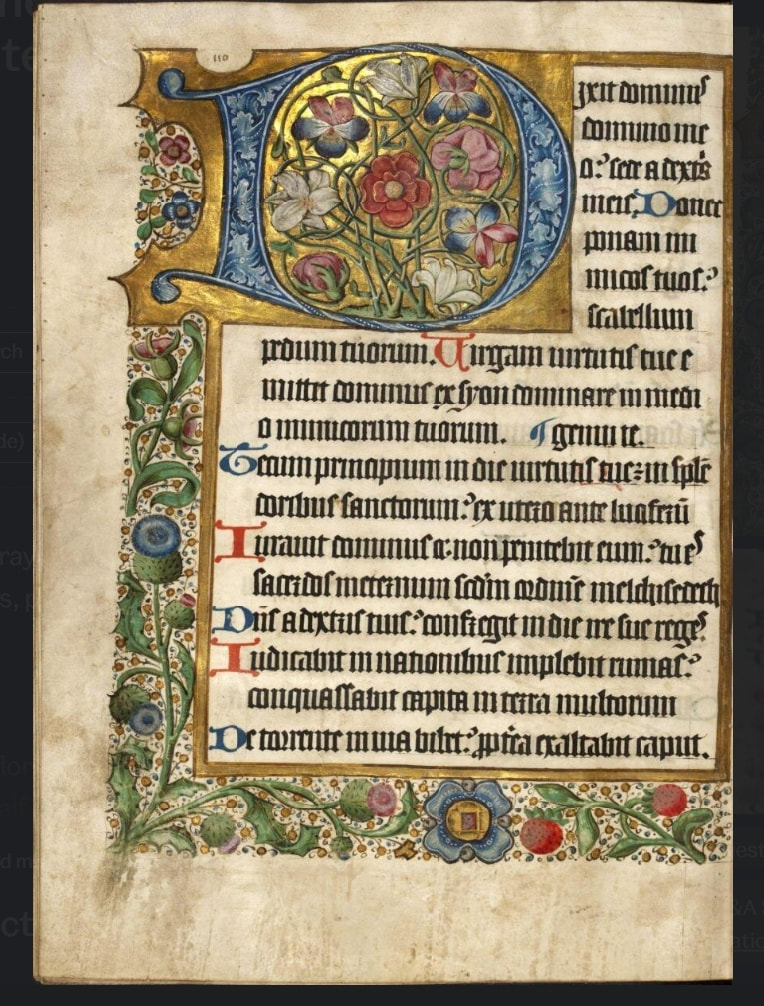 110
Dixit dominus
domino me
o: sede a dextris
meis, Donec
ponam ini
micos tuos:
scabellum
pedum tuorum. Virgam virtutis tue e
mittet dominus ex syon dominare in medi
o inimicorum tuorum. genui te.
Tecum principium in die virtutis tue: in splē
doribus sanctorum: ex utero ante luciferū
Iuravit dominus et non penitebit eum: tu es
sacerdos ineternum scdm ordinē melchisedech
Dn̄s a dextris tuis: confregit in die ire sue reges.
Iudicabit in nationibus implebit ruinas:
conquassabit capita in terra multorum
De torrente in via bibet: ꝓpterea exaltabit caput.